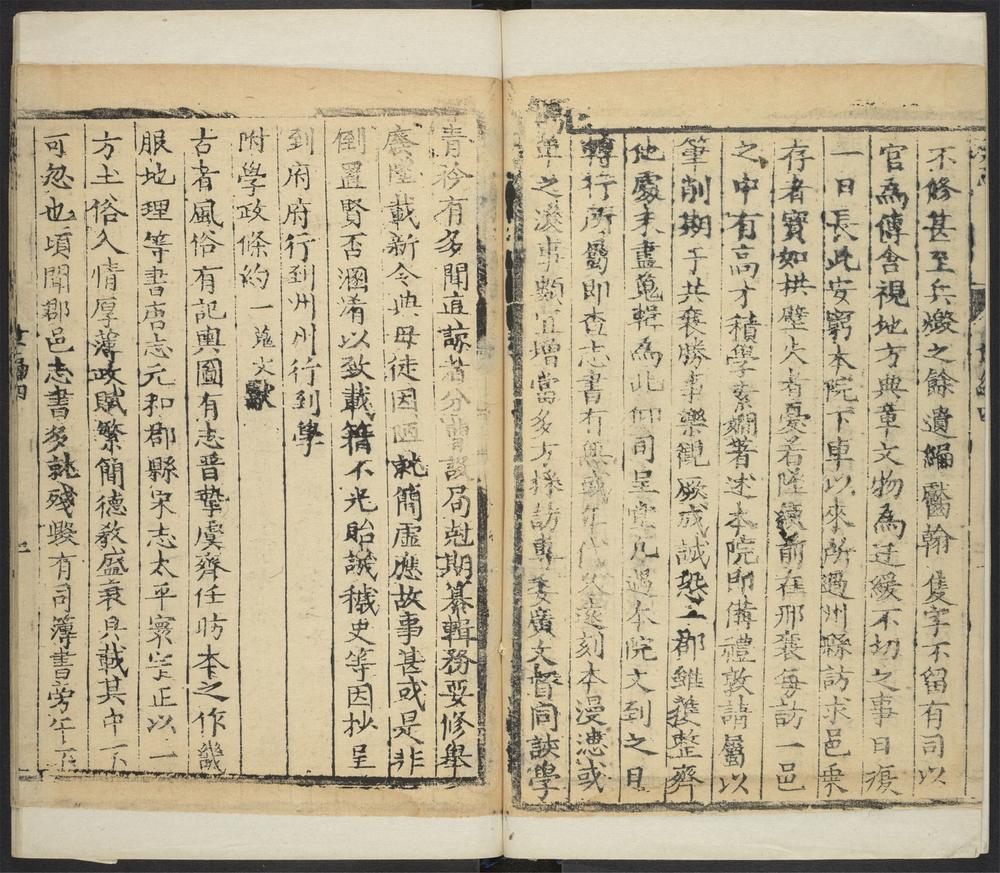 不修甚至兵燬之餘遺編齾翰隻字不留有司以
官為傳舍視地方典章文物為迂緩不切之事日復
一日長此安窮本院下車以來所過州縣訪求邑乗
存者寶如拱璧火者憂若墜前在邢襄每訪一邑
之中有高才積學素嫻著述本院即備禮敦請屬以
筆削期于共襄勝事樂觀厥成誠恐二郡雖獲整齊
他處未盡蒐輯為此仰司呈堂凡過本院文到之日
轉行所屬即查志書有無或年代久遠刻本漫漶或
年之後事數宜增當多方採訪專委廣文督同該學
青衿有多聞直諒者分設局尅期纂輯務妥修舉
廢墜載新令典毋徒因陋就簡虛應故事甚或是非
倒置賢否涵淆以致載籍不光貽誠穢史等因抄呈
到府府行到州州行到學
附學政條約一蒐文獻
古者風俗有記輿圖有志晉摯虞齊任昉本之作畿
服地理等書唐志元和郡縣宋志太平寰宇正以一
方土俗人情厚薄政賦繁簡德教盛衰具載其中不
可忽也頃聞郡邑志書多就殘毀有司簿書旁午